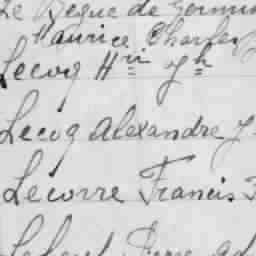 Le Begue de Germin
Maurice Charles
Lecoq Hri Jh
Lecoq Alexandre J
Lecorre Francis F